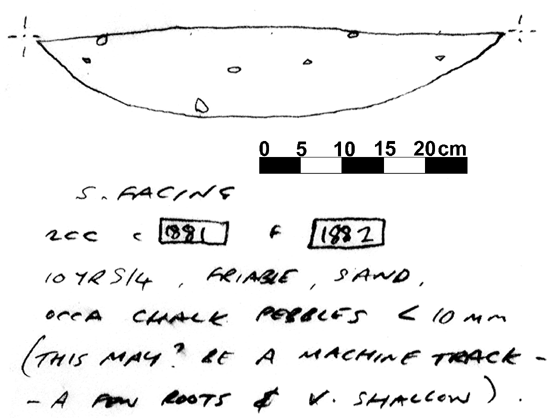 0 5 10 15 20cm
S. FACING
2CC C 1881 F 1882
10YR5/4, FRIABLE, SAND,
OCCA CHALK PEBBLES < 10MM
(THIS MAY? BE A MACHINE TRACK -
- A FEW ROOTS & V. SHALLOW).